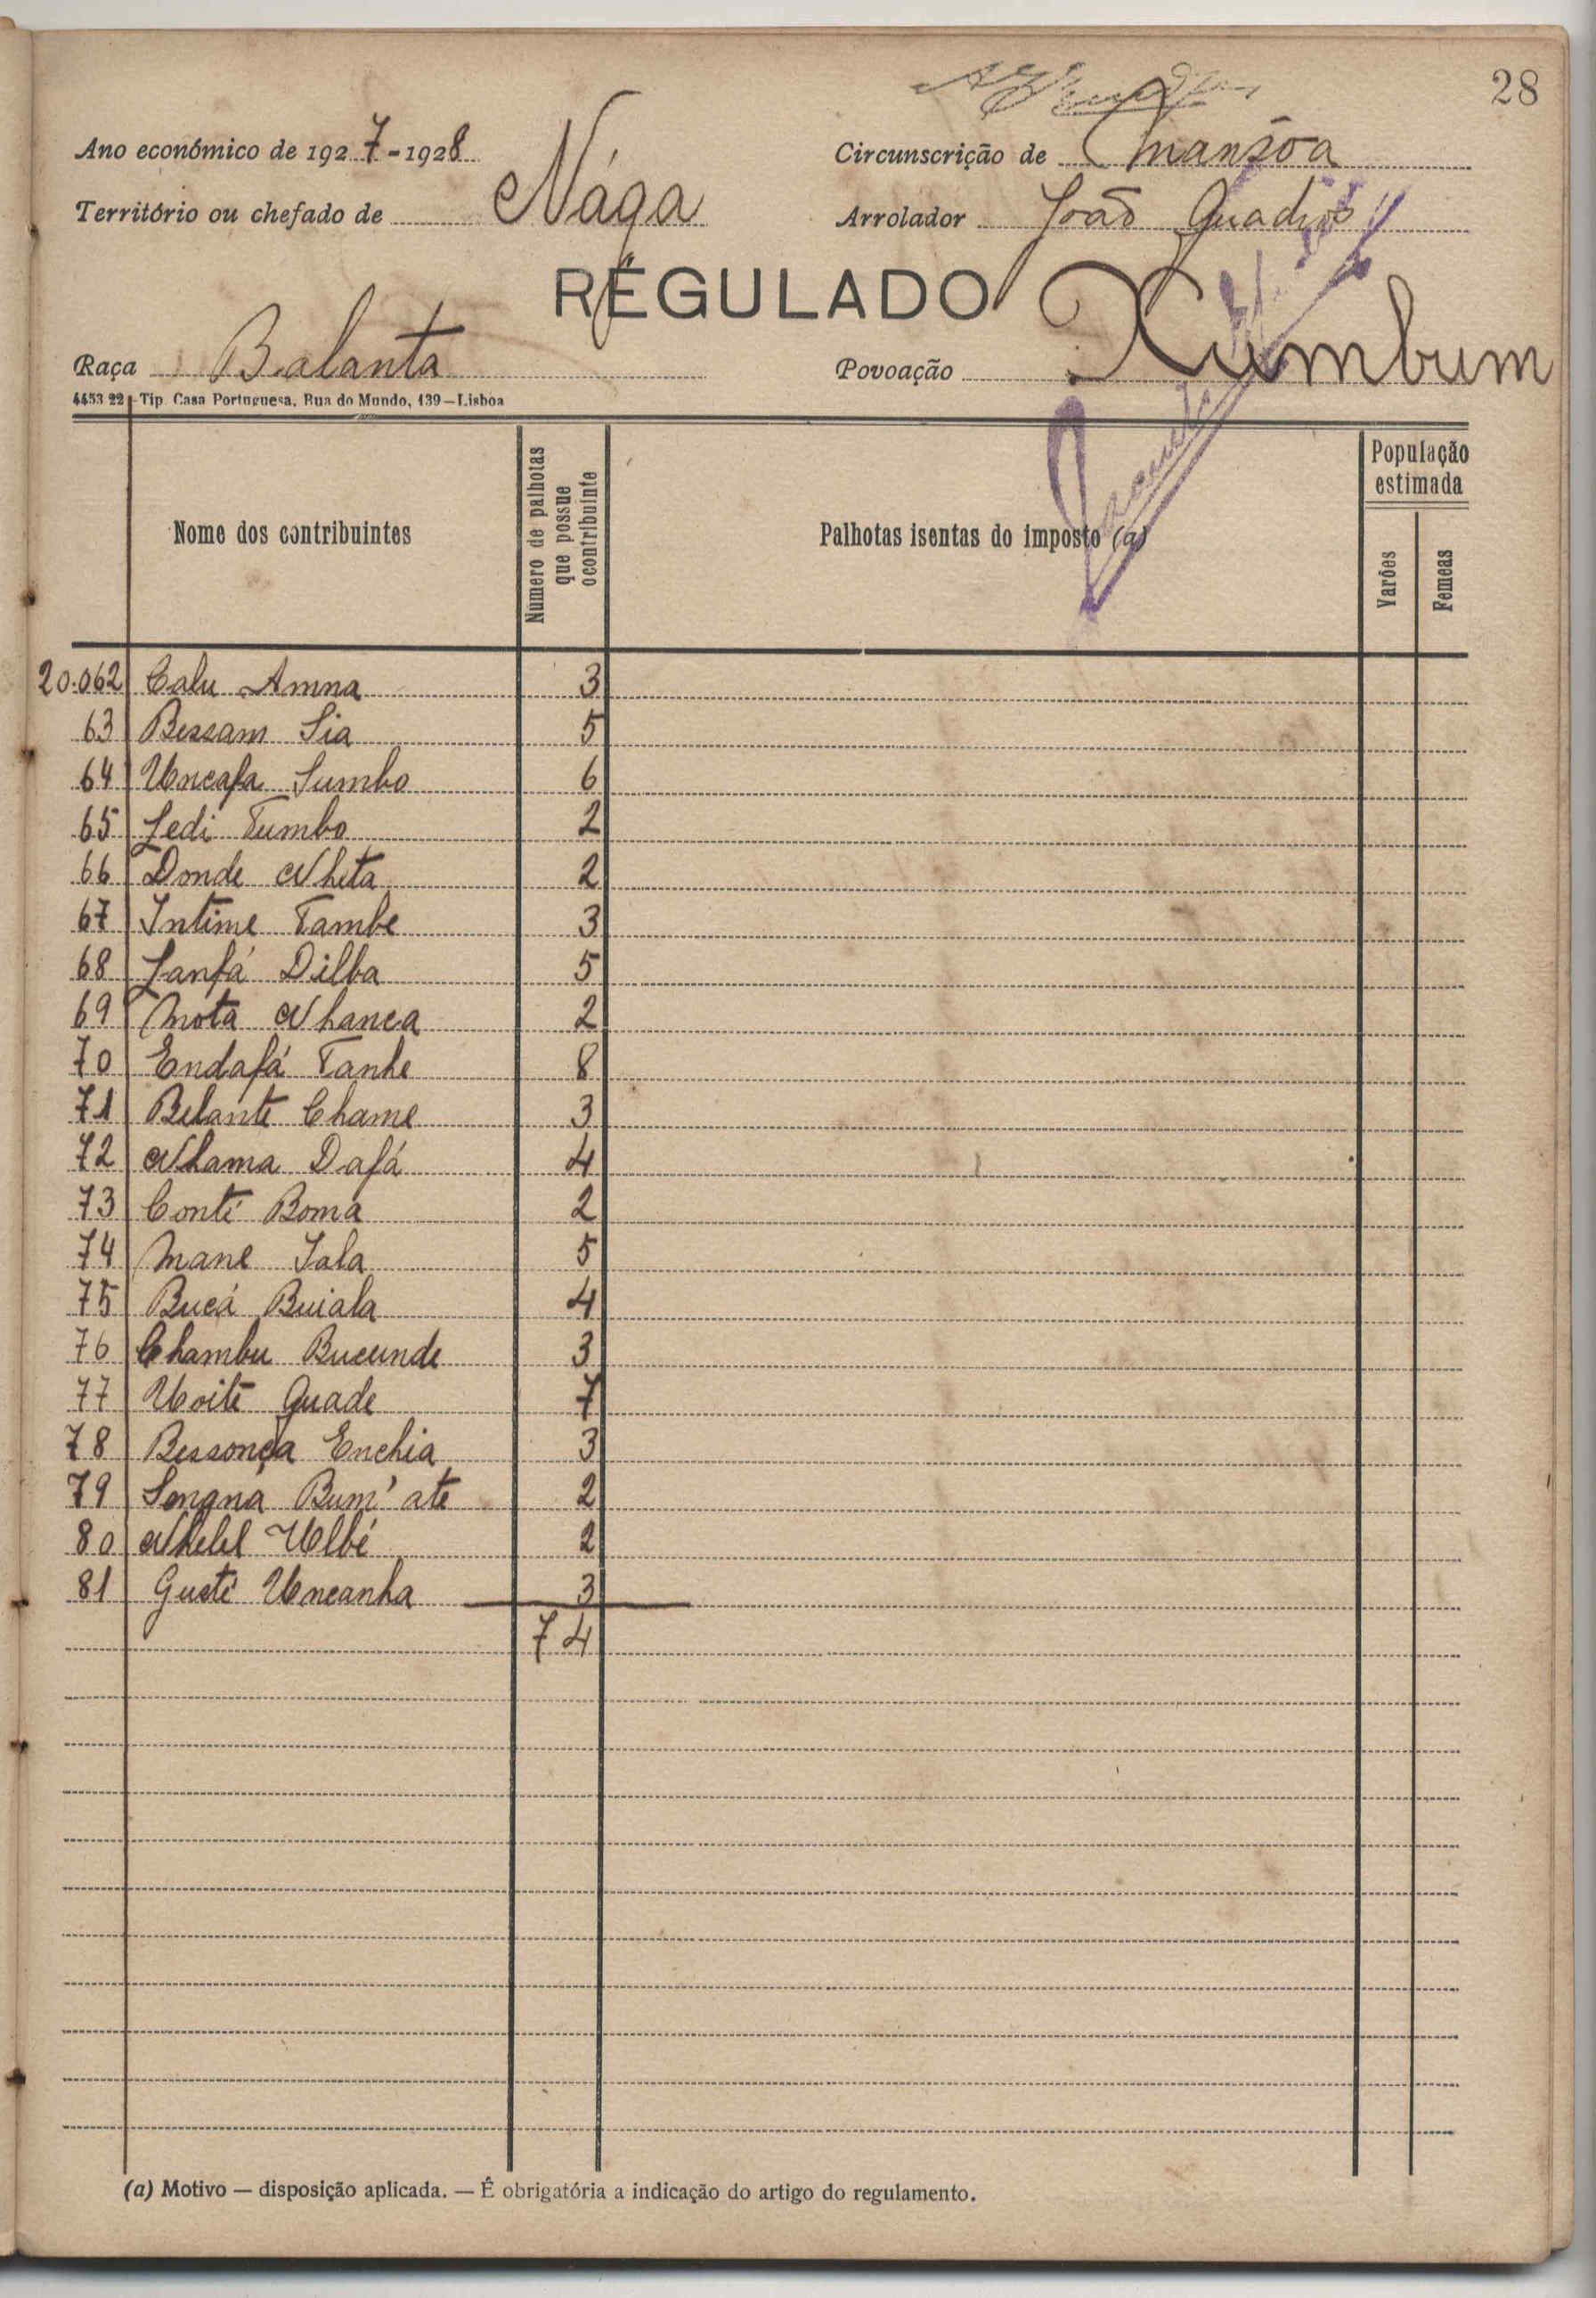 28
Ano económico de 1927-1928
Circunscrição de Mansôa
Território ou chefado de Nága
Arrolador João Quadros
RÉGULADO
Raça Balanta
Povoação Kumbum
4453 22 - Tip. Casa Portuguesa, Rua do Mundo, 139 - Lisboa
Nome dos contribuintes
Número de palhotas que possue o contribuinte
Palhotas isentas do imposto (a)
População estimada
Varões
Femeas
20.062 Calu Amna 3
63 Bessam Sia 5
64 Uncafa Sumbo 6
65 Jedi Tumbo 2
66 Donde Nhita 2
67 Intime Tambe 3
68 Janfá Dilba 5
69 Mota Nhanca 2
70 Endafá Tanhe 8
71 Belante Chame 3
72 Nhama Dafá 4
73 Conté Boma 2
74 Mane Iala 5
75 Bucá Buiala 4
76 Chambu Bucunde 3
77 Uoite Quade 7
78 Bessonça Enchia 3
79 Senana Bum'ate 2
80 Ulbé 2
81 Gusté Uncanha 3
74
(a) Motivo — disposição aplicada. — É obrigatória a indicação do artigo do regulamento.